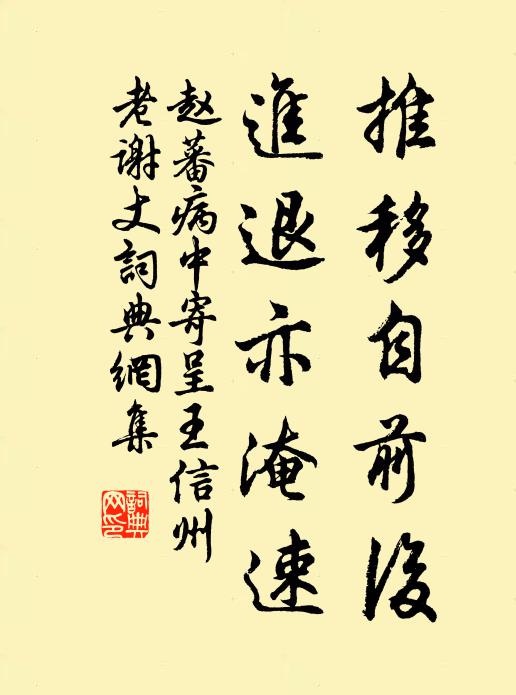 推移自前後
進退亦淹速
赵蕃病中寄呈王信州
老谢丈詞典網集
詞典
网印